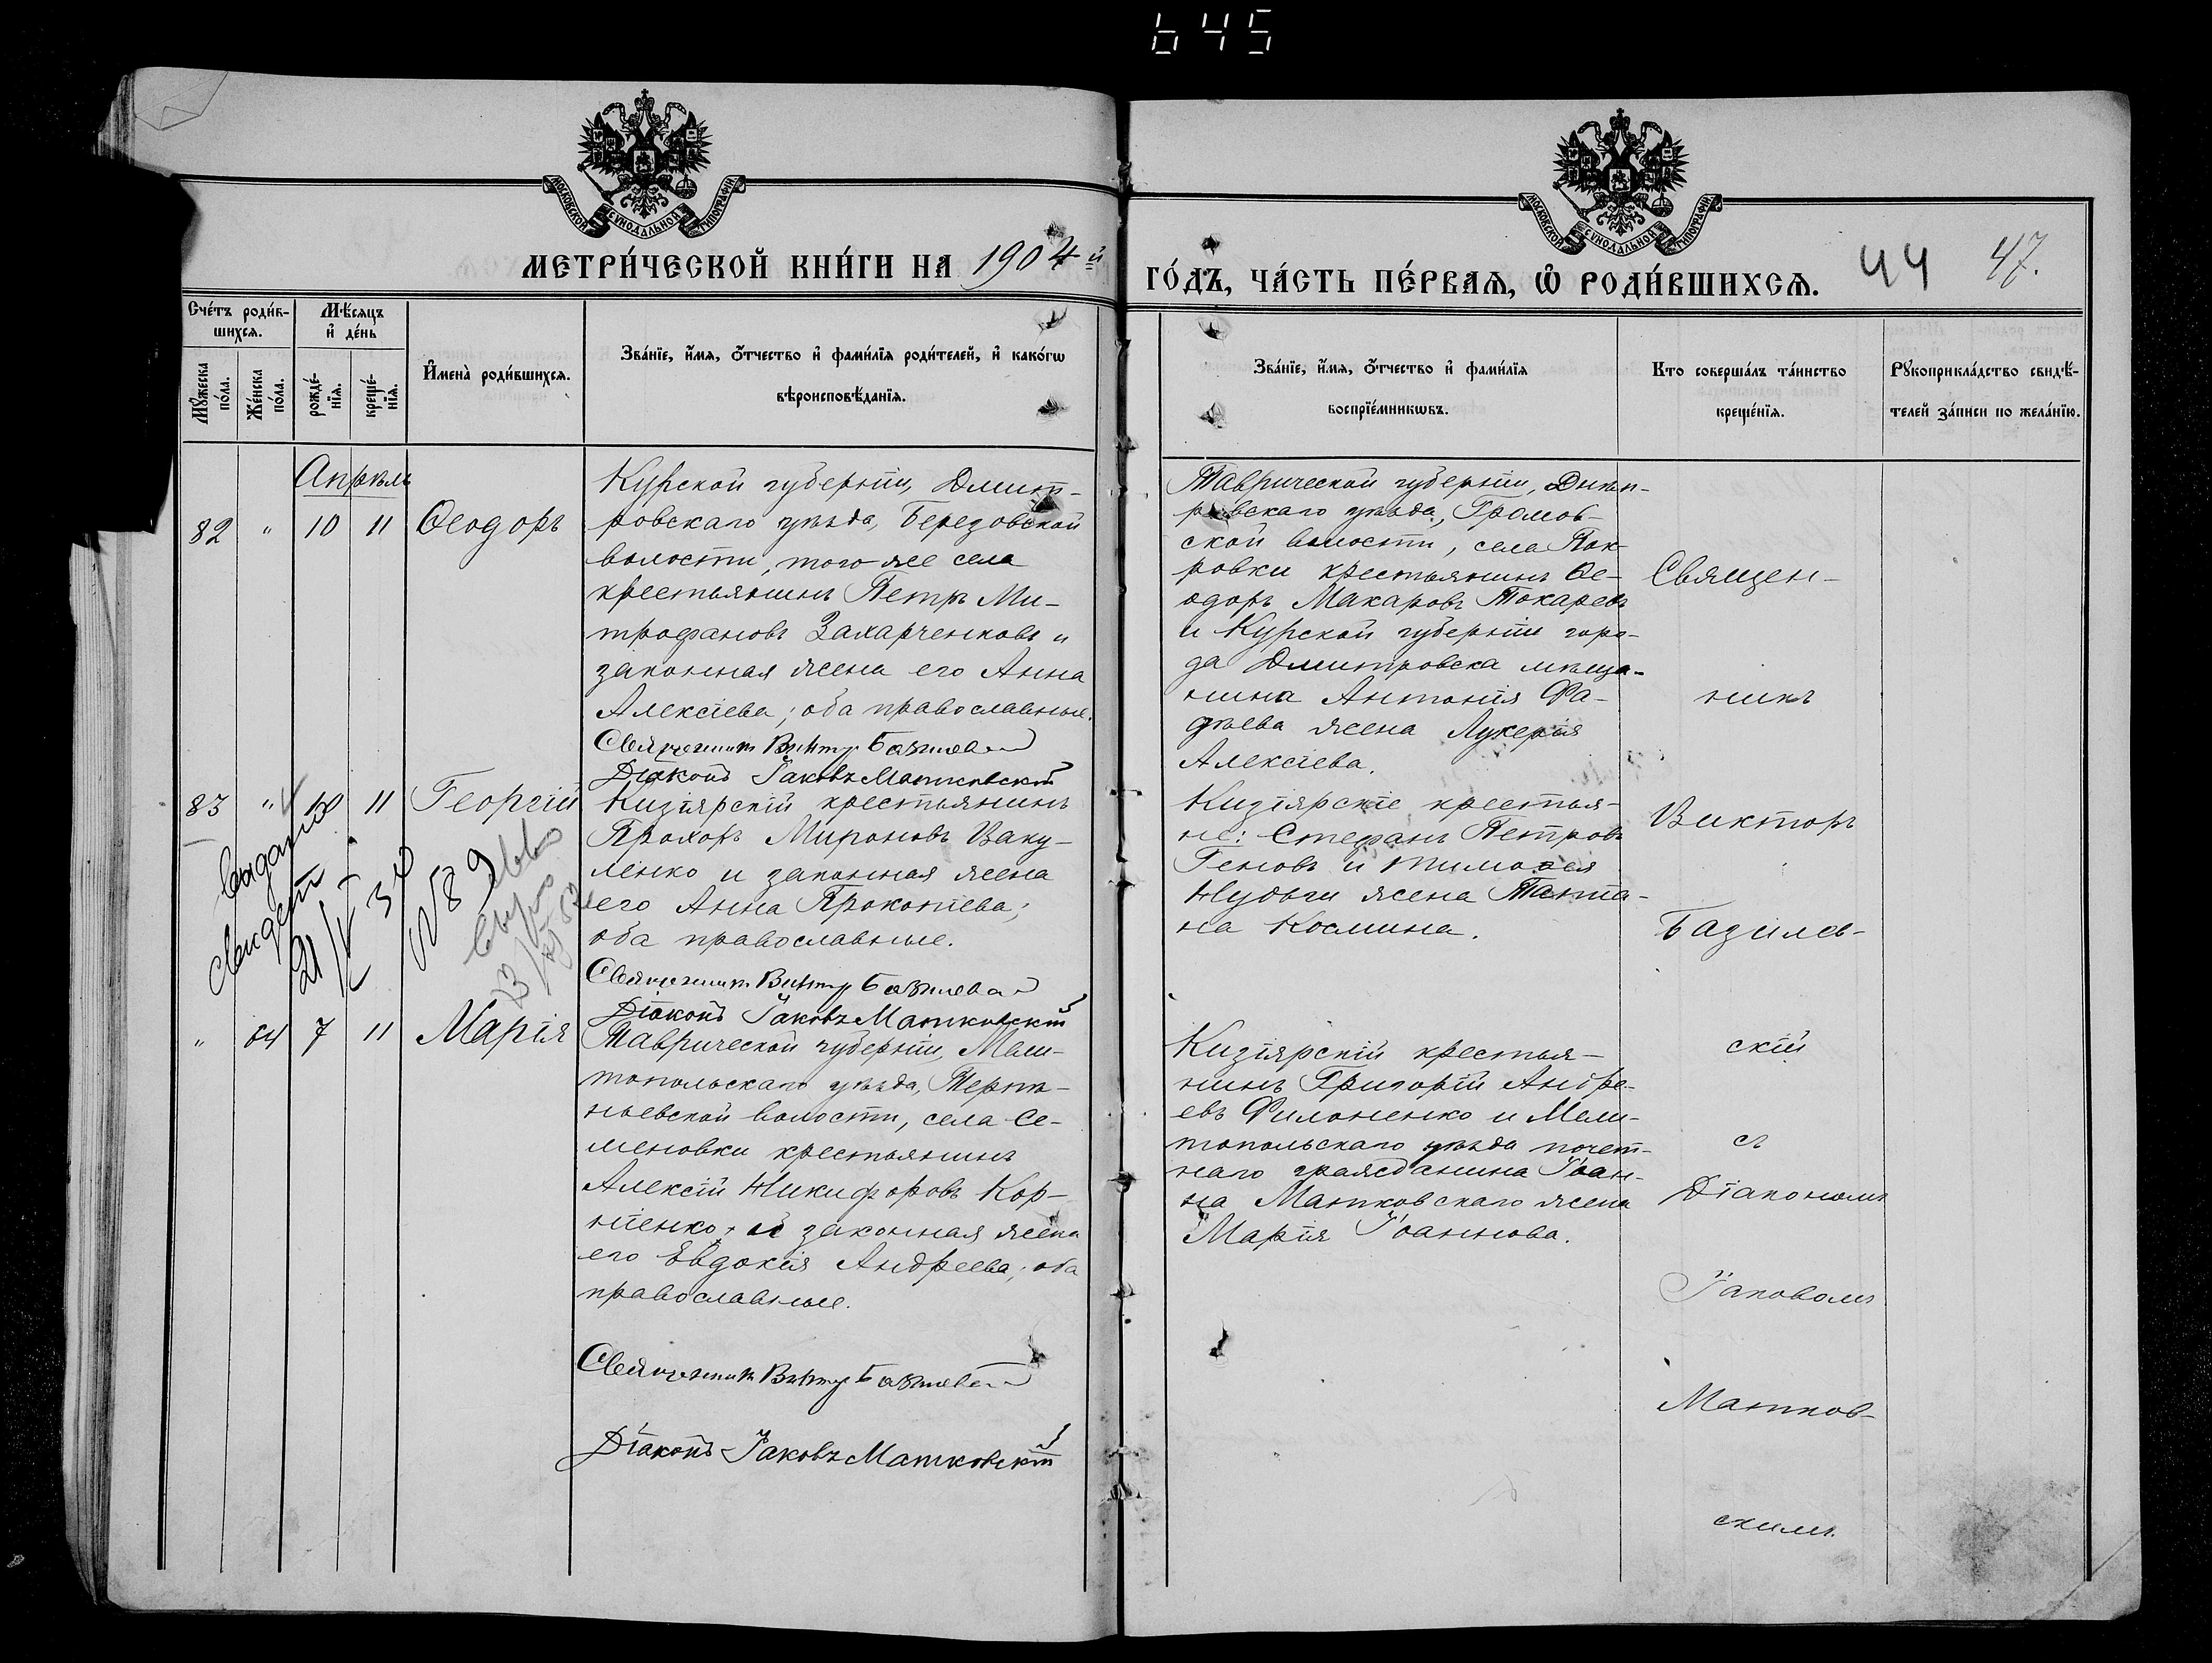 645
МОСКОВСКОЙ СѴНОДАЛЬНОЙ ТИПОГРАФІИ
МОСКОВСКОЙ СѴНОДАЛЬНОЙ ТИПОГРАФІИ
МЕТРИ́ЧЕСКОЙ КНИ́ГИ НА 1904й
ГО́ДЪ, ЧА́СТЬ ПЕ́РВАЯ, Ѽ РОДИ́ВШИХСЯ. 44 47.
Сче́тъ роди́в-
шихся.
Мѣ́сяцъ
и҆ де́нь
Мꙋ́жеска
по́ла.
Же́нска
по́ла.
рожде́-
нїя.
креще́-
нїя.
И҆мена̀ роди́вшихся.
Зва́нїе, и҆́мя, ѻ҆́тчество и҆ фами́лїя роди́телей, и҆ како́гѡ
вѣроисповѣ́данїя.
Зва́нїе, и҆́мя, ѻ҆́тчество и҆ фами́лїя
воспрїе́мникѡвъ.
Кто соверша́лъ та́инство
креще́нїя.
Рꙋкоприкла́дство свидѣ́-
телей за́писи по жела́нїю.
Апрѣль
82 " 10 11 Ѳеодоръ
Курской губерніи, Дмит-
ровскаго уѣзда, Березовской
волости, того-же села
крестьянинъ Петръ Ми-
трофановъ Захарченковъ и
законная жена его Анна
Алексіева; оба православные.
Священникъ Викторъ Базилевскій
Діаконъ Іаковъ Матковскій
Таврической губерніи, Днѣп-
ровскаго уѣзда, Громов-
ской волости, села Пок-
ровки крестьянинъ Ѳе-
одоръ Макаровъ Токаревъ
и Курской губерніи горо-
да Дмитровска мѣща-
нина Антонія Фа-
дѣева жена Лукерія
Алексіева.
83 " 10 11 Георгій
Кизіярскій крестьянинъ
Прохоръ Мироновъ Ваку-
ленко и законная жена
его Анна Прокопіева;
оба православные.
Священникъ Викторъ Базилевскій
Діаконъ Іаковъ Матковскій
Кизіярскіе крестья-
не: Стефанъ Петровъ
Геновъ и Тимоѳея
Нудьги жена Татіа-
на Космина.
№89
" 84 7 11 Марія
Таврической губерніи, Мели-
топольскаго уѣзда, Терпѣ-
ньевской волости, села Се-
меновки крестьянинъ
Алексій Никифоровъ Кор-
ніенко и законная жена
его Евдокія Андреева; оба
православные.
Священникъ Викторъ Базилевскій
Діаконъ Іаковъ Матковскій
Кизіярскій крестья-
нинъ Григорій Андре-
евъ Филоненко и Мели-
топольскаго уѣзда почет-
наго гражданина Іоан-
на Матковскаго жена
Марія Іоаннова.
Священ-
никъ
Викторъ
Базилев-
скій
съ
Діакономъ
Іаковомъ
Матков-
скимъ.